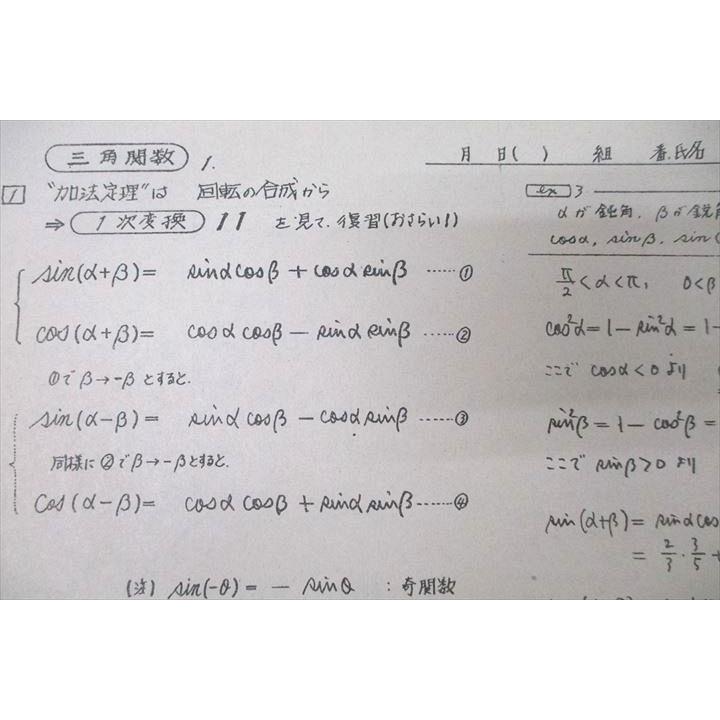 三角関数 1.
月 日( ) 組 番.氏名
1 "加法定理"は 回転の合成から
⇒ 1次変換 11 を見て、復習(おさらい!)
sin(α+β)= sinαcosβ + cosαsinβ ……①
cos(α+β)= cosαcosβ − sinαsinβ ……②
①で β→−β とすると.
sin(α−β)= sinαcosβ − cosαsinβ ……③
同様に ②で β→−βとすると.
cos(α−β)= cosαcosβ + sinαsinβ ……④
(注) sin(−θ)= − sinθ : 奇関数
ex 3
αが鈍角、βが鋭角
cosα, sinβ, sin(
π/2 < α < π, 0<β
cos²α = 1 − sin²α = 1 −
ここで cosα<0 より
sin²β = 1 − cos²β =
ここで sinβ>0 より
sin(α+β)= sinαcos
= 2/3 · 3/5 +